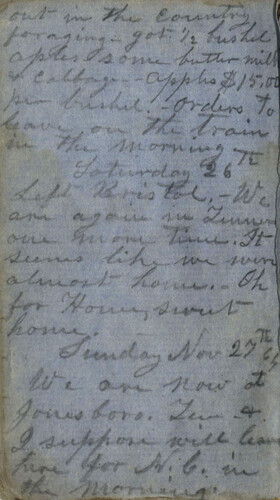 out in the Country
foraging - got 1/2 bushel
aples some butter milk
& Cabbage - Apples $15.00
per bushel - Orders to
leave on the train
in the morning -
Saturday 26th
Left Bristol, - We
are again in Tenn
one more time. It
seems like we were
almost home. - Oh
for Home, sweet
home.
Sunday Nov 27th
We are now at
Jonesboro. Ten &
I suppose will leave
here for N.C. in
the morning.